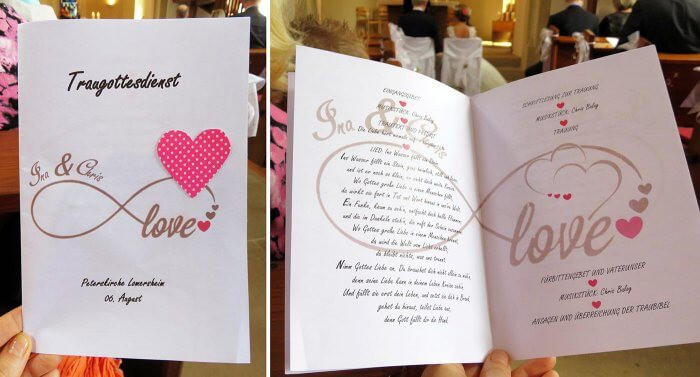 Traugottesdienst
Ina & Chris
love
Peterskirche Lomersheim
06. August
EINGANGSGEBET
MUSIKSTÜCK: Chris Buley
TRAUTEXT UND PREDIGT
Die Liebe hört niemals auf
LIED: Ins Wasser fällt ein Stein
Ins Wasser fällt ein Stein, ganz heimlich, still und leise,
und ist er noch so klein, er zieht doch weite Kreise.
Wo Gottes große Liebe in einen Menschen fällt,
da wirkt sie fort in Tat und Wort hinaus in unsre Welt.
Ein Funke, kaum zu sehn, entfacht doch helle Flammen
und die im Dunkeln stehn, die ruft der Schein zusammen.
Wo Gottes große Liebe in einem Menschen brennt,
da wird die Welt vom Licht erhellt,
da bleibt nichts, was uns trennt.
Nimm Gottes Liebe an. Du brauchst dich nicht allein zu mühn,
denn seine Liebe kann in deinem Leben Kreise ziehn.
Und füllt sie erst dein Leben, und setzt sie dich in Brand,
gehst du hinaus, teilst Liebe aus,
denn Gott füllt dir die Hand.
Ina & Ch
SCHRIFTLESUNG ZUR TRAUUNG
MUSIKSTÜCK: Chris Buley
TRAUUNG
love
FÜRBITTENGEBET UND VATERUNSER
MUSIKSTÜCK: Chris Buley
ANSAGEN UND ÜBERREICHUNG DER TRAUBIBEL